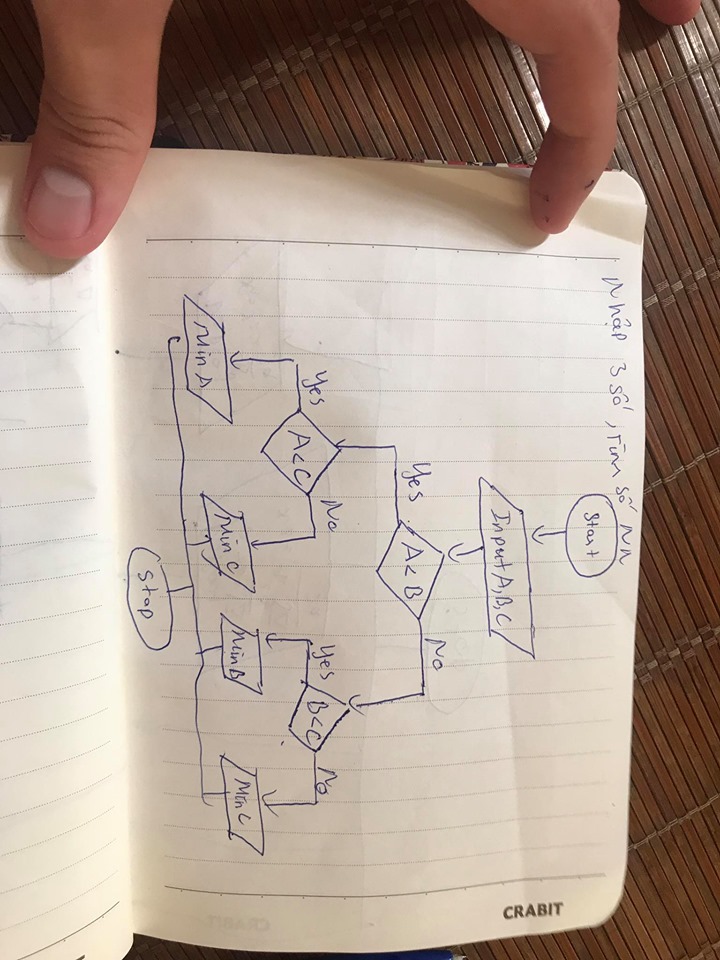 Nhập 3 số, tìm số NN
Start
Input A, B, C
A < B
Yes
No
A < C
Yes
No
B < C
Yes
No
Min A
Min C
Min B
Min C
Stop
CRABIT